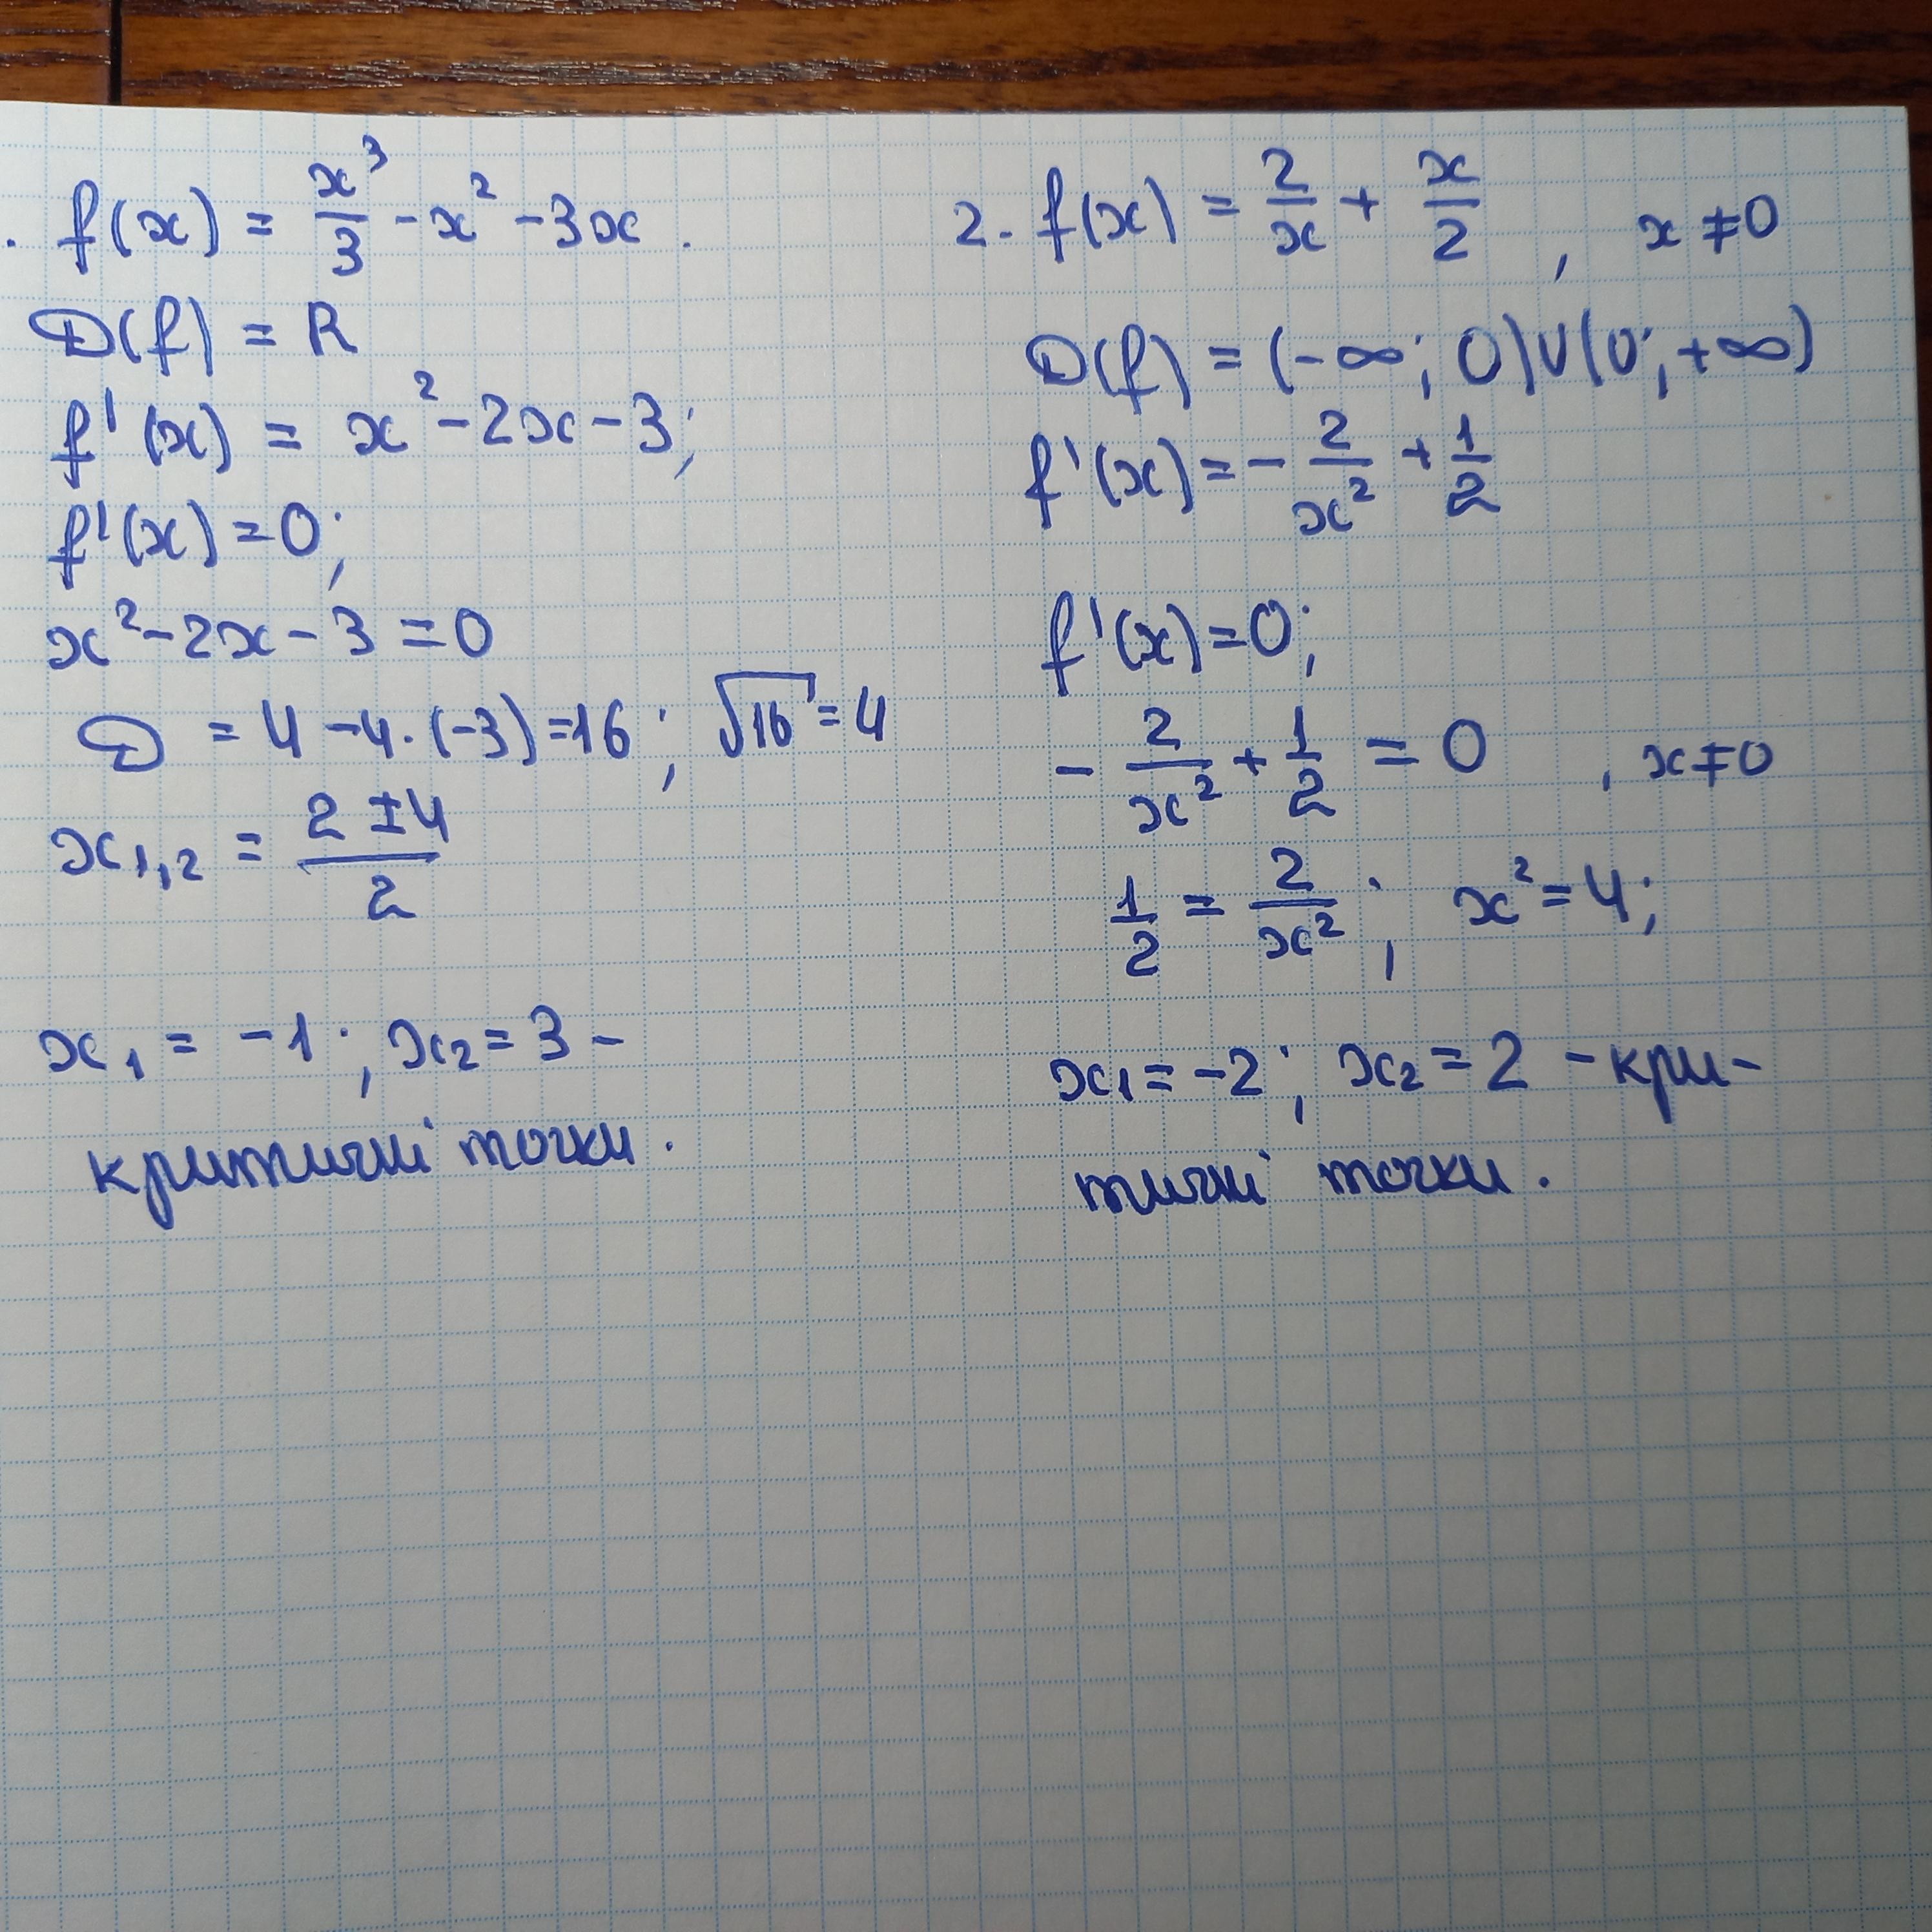 . f(x) = x³/3 - x² - 3x .
D(f) = R
f'(x) = x² - 2x - 3;
f'(x) = 0;
x² - 2x - 3 = 0
D = 4 - 4 · (-3) = 16 ; √16 = 4
x₁,₂ = (2 ± 4)/2
x₁ = -1 ; x₂ = 3 -
критичні точки .
2. f(x) = 2/x + x/2 , x ≠ 0
D(f) = (-∞; 0) ∪ (0; +∞)
f'(x) = - 2/x² + 1/2
f'(x) = 0;
- 2/x² + 1/2 = 0 , x ≠ 0
1/2 = 2/x² ; x² = 4;
x₁ = -2 ; x₂ = 2 - кри-
тичні точки .